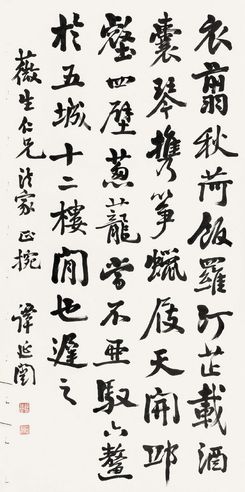 衣翦秋荷飯羅汀芷載酒
囊琴攜筇蠟屐天開邱
壑四壁蔥蘢當不亞馭六鰲
於五城十二樓間也遲之
薇生仁兄法家正捥 譚延闓